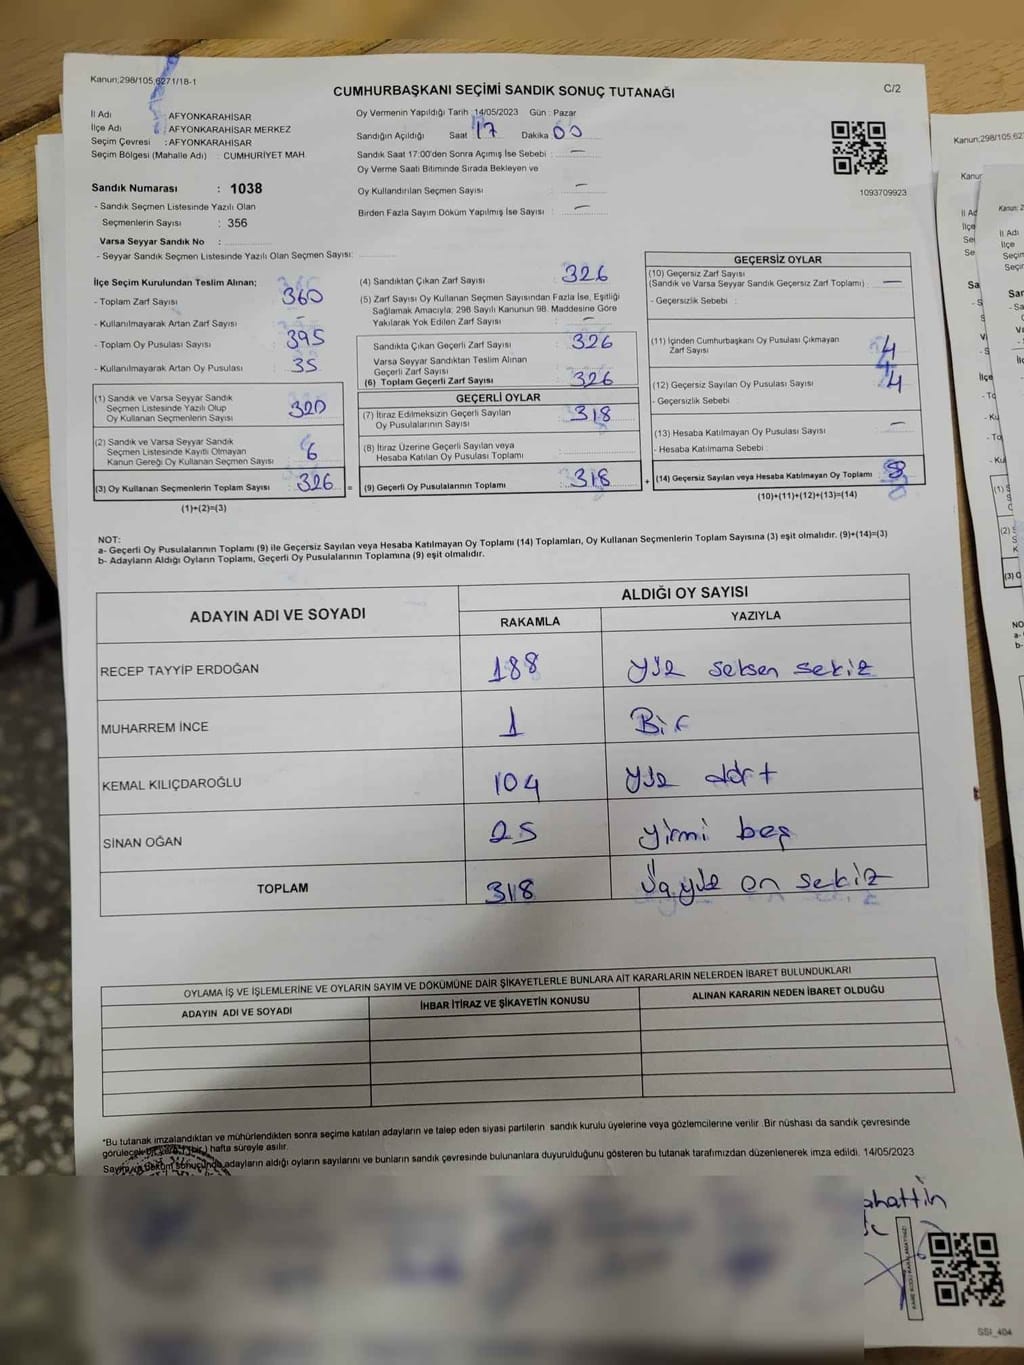 Kanun;298/105,6271/18-1
CUMHURBAŞKANI SEÇİMİ SANDIK SONUÇ TUTANAĞI
C/2
İl Adı : AFYONKARAHİSAR
İlçe Adı : AFYONKARAHİSAR MERKEZ
Seçim Çevresi : AFYONKARAHİSAR
Seçim Bölgesi (Mahalle Adı) : CUMHURİYET MAH.
Oy Vermenin Yapıldığı Tarih : 14/05/2023 Gün : Pazar
Sandığın Açıldığı Saat 17 Dakika 00
Sandık Saat 17:00'den Sonra Açımış İse Sebebi : —
Oy Verme Saati Bitiminde Sırada Bekleyen ve
Oy Kullandırılan Seçmen Sayısı : —
Birden Fazla Sayım Döküm Yapılmış İse Sayısı : —
1093709923
Sandık Numarası : 1038
- Sandık Seçmen Listesinde Yazılı Olan
Seçmenlerin Sayısı : 356
Varsa Seyyar Sandık No :
- Seyyar Sandık Seçmen Listesinde Yazılı Olan Seçmen Sayısı:
İlçe Seçim Kurulundan Teslim Alınan;
- Toplam Zarf Sayısı : 360
- Kullanılmayarak Artan Zarf Sayısı : —
- Toplam Oy Pusulası Sayısı : 395
- Kullanılmayarak Artan Oy Pusulası : 35
(1) Sandık ve Varsa Seyyar Sandık
Seçmen Listesinde Yazılı Olup
Oy Kullanan Seçmenlerin Sayısı : 320
(2) Sandık ve Varsa Seyyar Sandık
Seçmen Listesinde Kayıtlı Olmayan
Kanun Gereği Oy Kullanan Seçmen Sayısı : 6
(3) Oy Kullanan Seçmenlerin Toplam Sayısı : 326 =
(1)+(2)=(3)
(4) Sandıktan Çıkan Zarf Sayısı : 326
(5) Zarf Sayısı Oy Kullanan Seçmen Sayısından Fazla İse, Eşitliği
Sağlamak Amacıyla, 298 Sayılı Kanunun 98. Maddesine Göre
Yakılarak Yok Edilen Zarf Sayısı : —
Sandıkta Çıkan Geçerli Zarf Sayısı : 326
Varsa Seyyar Sandıktan Teslim Alınan
Geçerli Zarf Sayısı :
(6) Toplam Geçerli Zarf Sayısı : 326
GEÇERLİ OYLAR
(7) İtiraz Edilmeksizin Geçerli Sayılan
Oy Pusulasının Sayısı : 318
(8) İtiraz Üzerine Geçerli Sayılan veya
Hesaba Katılan Oy Pusulası Toplamı :
(9) Geçerli Oy Pusulalarının Toplamı : 318 +
GEÇERSİZ OYLAR
(10) Geçersiz Zarf Sayısı
(Sandık ve Varsa Seyyar Sandık Geçersiz Zarf Toplamı) : —
- Geçersizlik Sebebi :
(11) İçinden Cumhurbaşkanı Oy Pusulası Çıkmayan
Zarf Sayısı : 4
(12) Geçersiz Sayılan Oy Pusulası Sayısı : 4
- Geçersizlik Sebebi :
(13) Hesaba Katılmayan Oy Pusulası Sayısı : —
- Hesaba Katılmama Sebebi :
(14) Geçersiz Sayılan veya Hesaba Katılmayan Oy Toplamı : 8
(10)+(11)+(12)+(13)=(14)
NOT:
a- Geçerli Oy Pusulalarının Toplamı (9) ile Geçersiz Sayılan veya Hesaba Katılmayan Oy Toplamı (14) Toplamları, Oy Kullanan Seçmenlerin Toplam Sayısına (3) eşit olmalıdır. (9)+(14)=(3)
b- Adayların Aldığı Oyların Toplamı, Geçerli Oy Pusulalarının Toplamına (9) eşit olmalıdır.
ADAYIN ADI VE SOYADI
ALDIĞI OY SAYISI
RAKAMLA YAZIYLA
RECEP TAYYİP ERDOĞAN 188 yüz seksen sekiz
MUHARREM İNCE 1 Bir
KEMAL KILIÇDAROĞLU 104 yüz dört
SİNAN OĞAN 25 yirmi beş
TOPLAM 318 üçyüz on sekiz
OYLAMA İŞ VE İŞLEMLERİNE VE OYLARIN SAYIM VE DÖKÜMÜNE DAİR ŞİKAYETLERLE BUNLARA AİT KARARLARIN NELERDEN İBARET BULUNDUKLARI
ADAYIN ADI VE SOYADI İHBAR İTİRAZ VE ŞİKAYETİN KONUSU ALINAN KARARIN NEDEN İBARET OLDUĞU
*Bu tutanak imzalandıktan ve mühürlendikten sonra seçime katılan adayların ve talep eden siyasi partilerin sandık kurulu üyelerine veya gözlemcilerine verilir. Bir nüshası da sandık çevresinde
görülecek bir yere 1 (bir) hafta süreyle asılır.
Sayım ve Döküm sonucunda adayların aldığı oyların sayılarını ve bunların sandık çevresinde bulunanlara duyurulduğunu gösteren bu tutanak tarafımızdan düzenlenerek imza edildi. 14/05/2023
ahattin
SSI_404